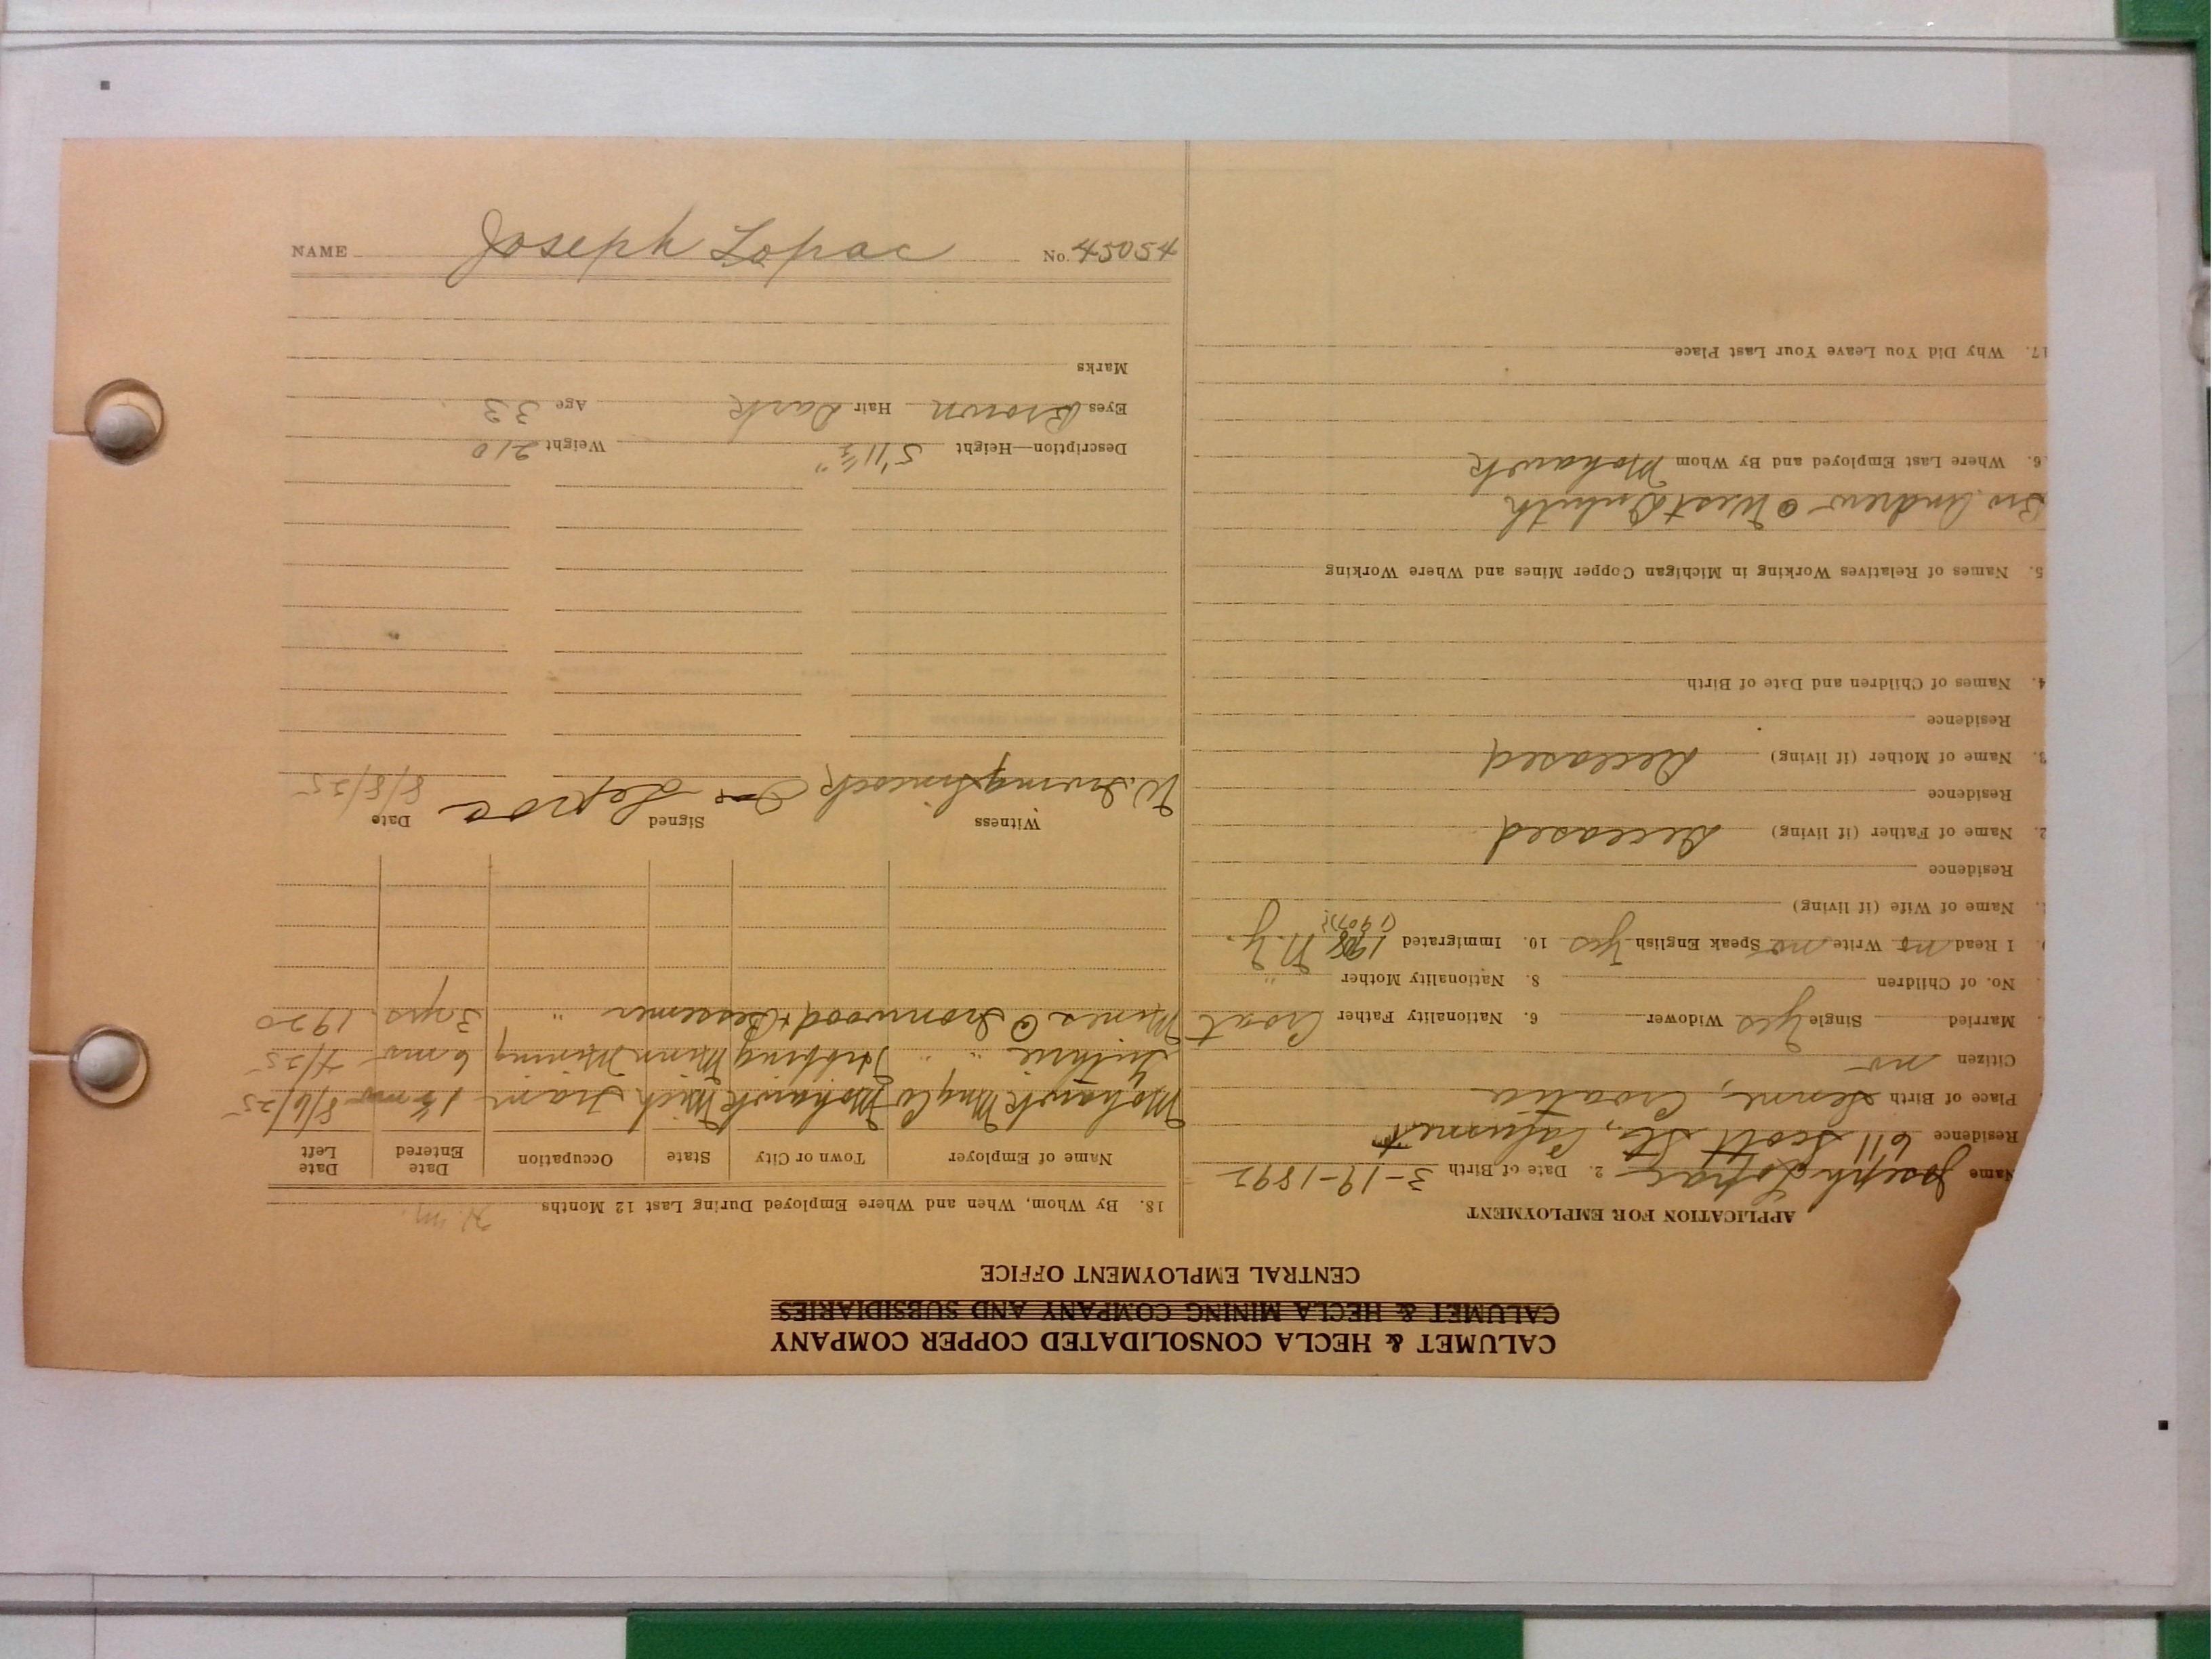 CALUMET & HECLA CONSOLIDATED COPPER COMPANY
CALUMET & HECLA MINING COMPANY AND SUBSIDIARIES
CENTRAL EMPLOYMENT OFFICE
APPLICATION FOR EMPLOYMENT
Name Joseph Lopac 2. Date of Birth 3-19-1892
Residence 611 Scott St., Calumet
Place of Birth Senne, Croatia
Citizen no
Married Single Yes Widower 6. Nationality Father Croat
No. of Children 8. Nationality Mother "
I Read no Write no Speak English Yes 10. Immigrated 1908 N.Y.
(1907)
Name of Wife (if living)
Residence
2. Name of Father (if living) Deceased
Residence
3. Name of Mother (if living) Deceased
Residence
4. Names of Children and Date of Birth
5. Names of Relatives Working in Michigan Copper Mines and Where Working
Bro. Andrew @ West Duluth
6. Where Last Employed and By Whom Mohawk
17. Why Did You Leave Your Last Place
18. By Whom, When and Where Employed During Last 12 Months
Name of Employer Town or City State Occupation Date Entered Date Left
Mohawk Mng Co Mohawk Mich tram 1½ mo 8/6/25
" " Hibbing Minn Mining 6 mo
Mines @ Ironwood & Bessemer " 3 yrs. 1920
Witness Signed Date
W. Irving Joe Lepoa 8/8/25
Description—Height 5'11½" Weight 210
Eyes Brown Hair Dark Age 33
Marks
NAME Joseph Lopac No. 45054